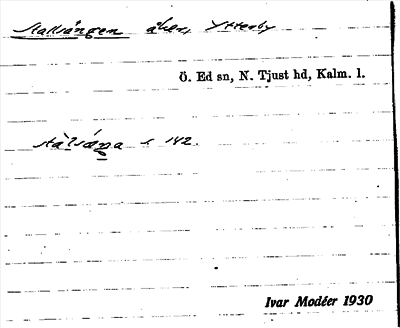 Stallsängen åker, Ytterby
Ö. Ed sn, N. Tjust hd, Kalm. l.
142.
Ivar Modéer 1930